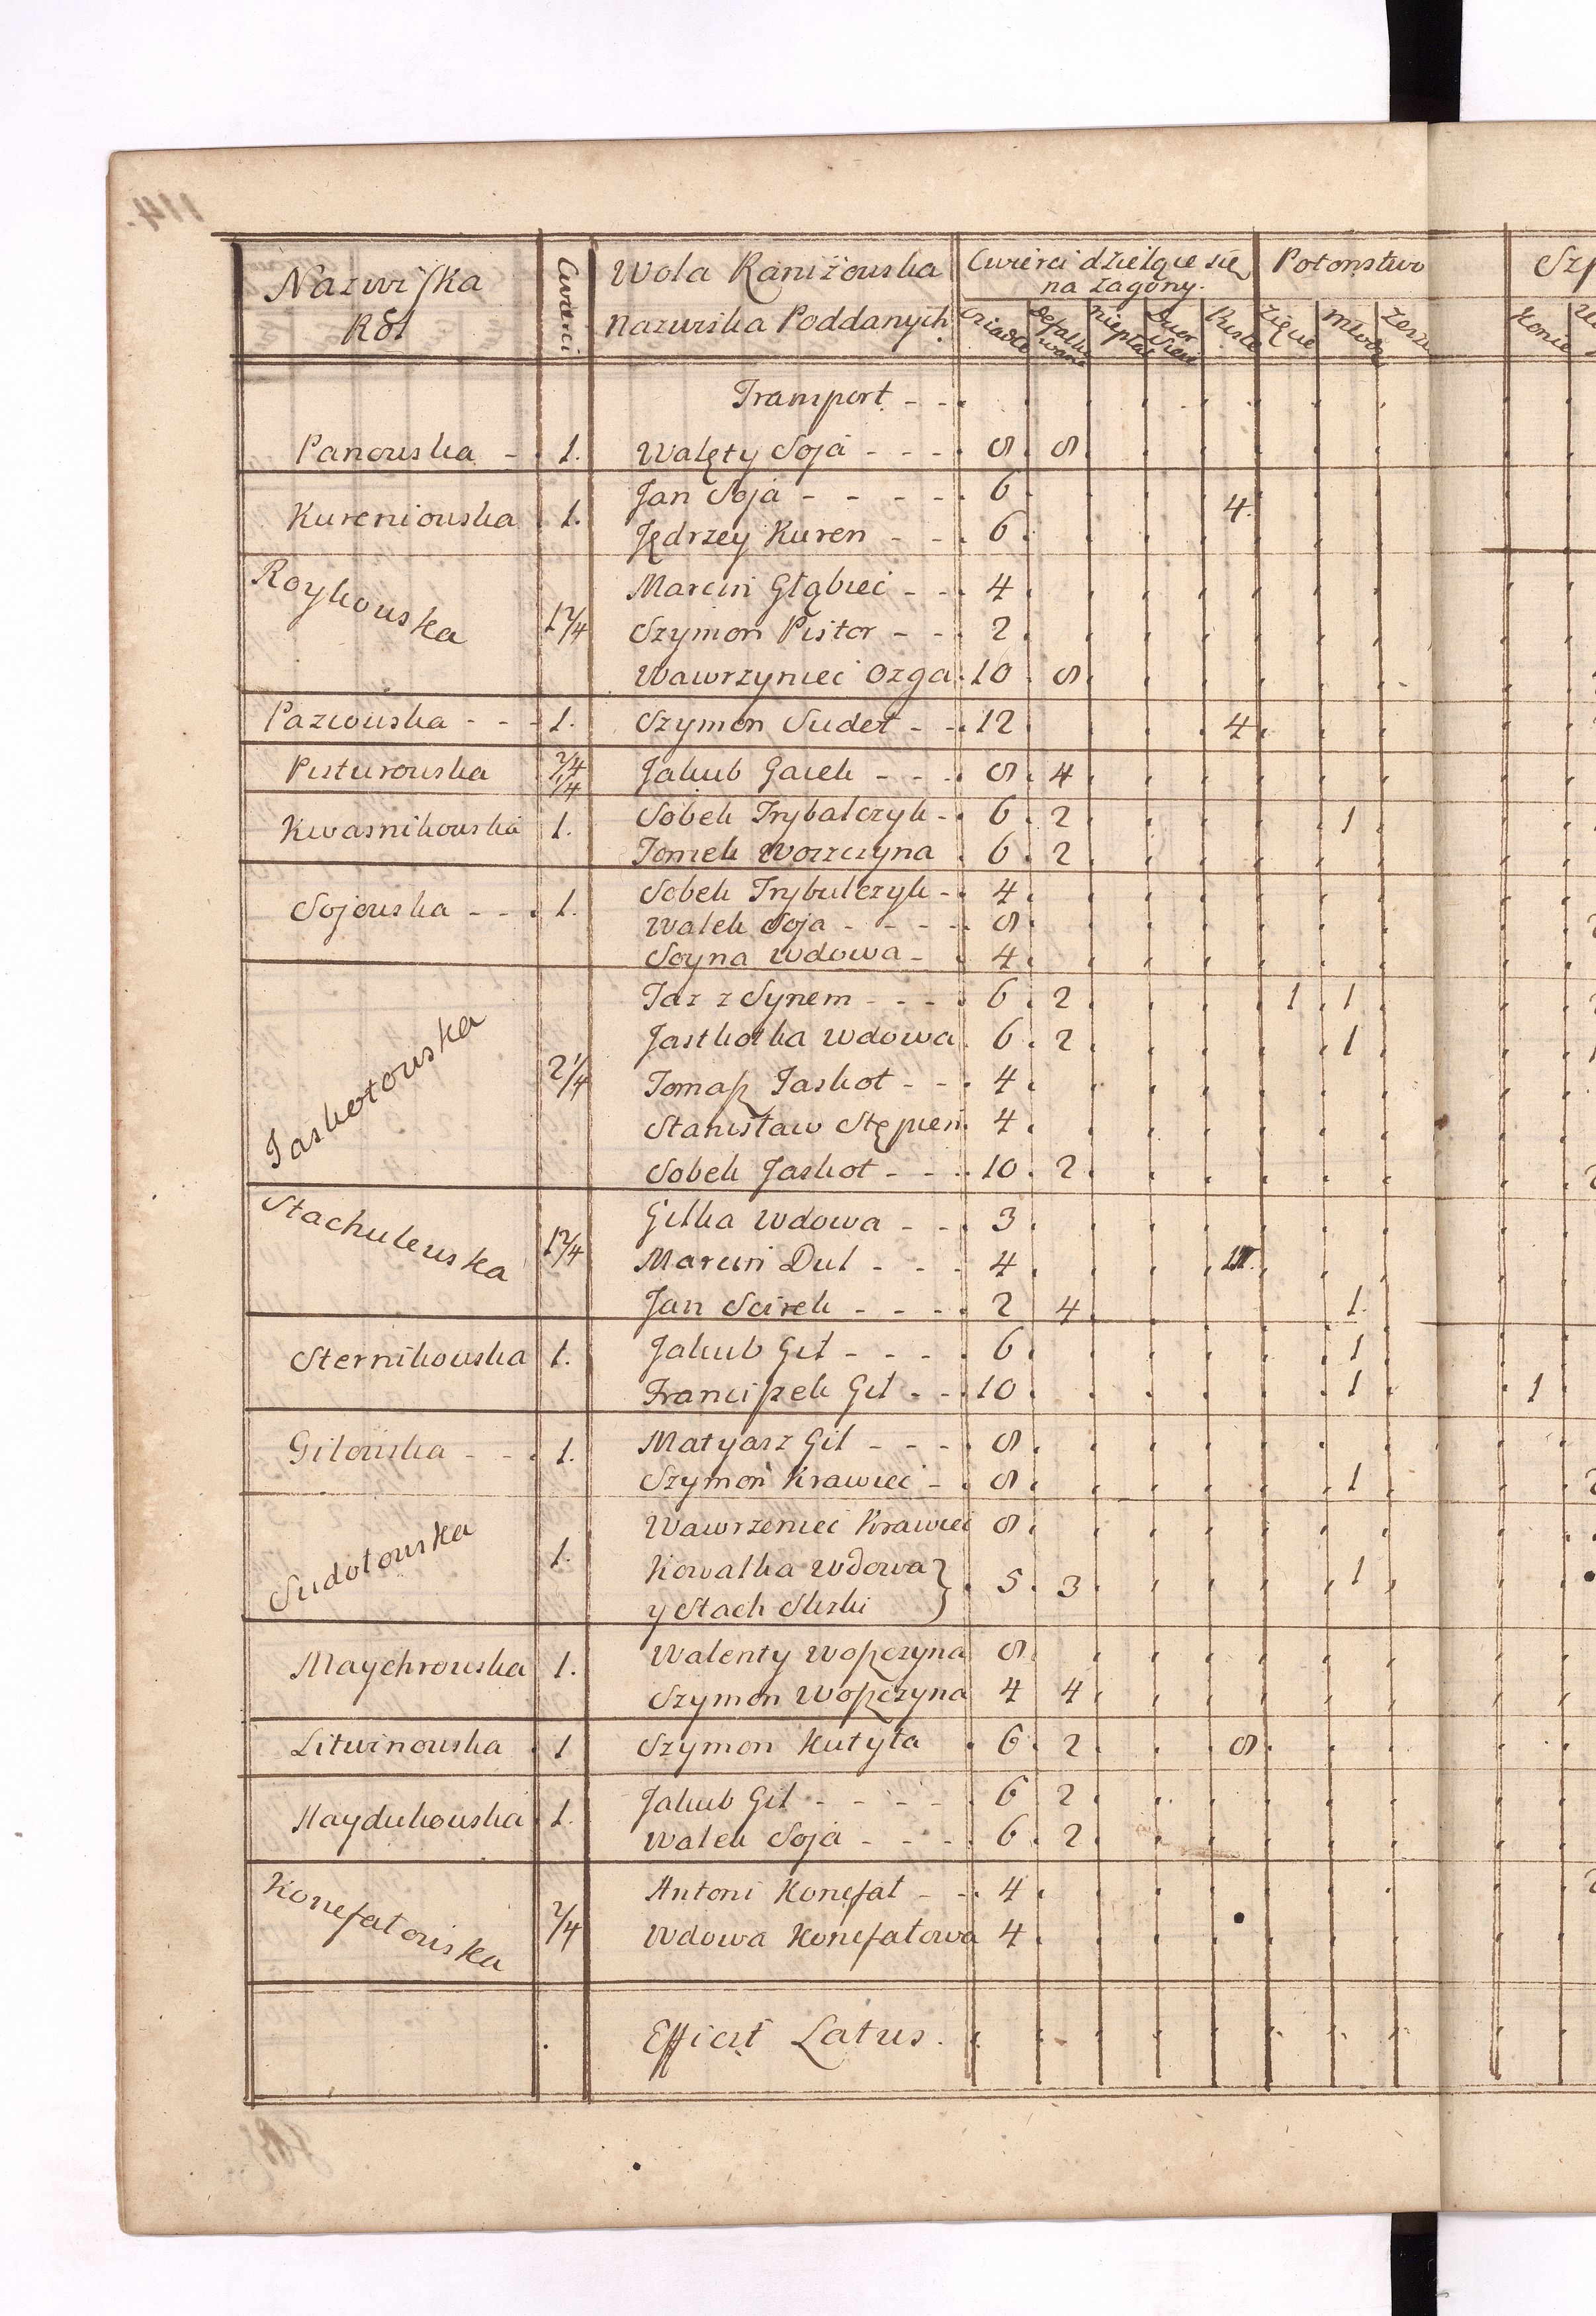 Nazwiſka Ról Cwierci Wola Raniżowska Nazwiska Poddanych Cwierci dzielące się na zagony. Osiadłe Defalkowane Niepłat Dworskie Puste Potomstwo Zięcie Młodz Konie
Transport
Panowska 1. Walęty Soja 8 8
Kureniowska 1. Jan Soja 6 4
Jędrzey Kuren 6
Roykowska 1 2/4 Marcin Głąbiec 4
Szymon Pistor 2
Wawrzyniec Ozga 10 8
Paziowska 1. Szymon Sudoł 12 4
Pisturowska 2/4 1/4 Jakub Gacek 8 4
Kwasnikowska 1. Sobek Trybalczyk 6 2 1
Tomek Woszczyna 6 2
Sojowska 1. Sobek Trybulczyk 4
Walek Soja 8
Soyna Wdowa 4
Taz z Synem 6 2 1 1
Jaskotowska 2 1/4 Jaskotka Wdowa 6 2 1
Tomaſz Jaskot 4
Stanisław Stępien 4
Sobek Jaskot 10 2
Stachulewska 1 2/4 Gilka Wdowa 3
Marcin Dul 4
Jan Scirek 2 4 1
Sternikowska 1. Jakub Gil 6 1
Franciſzek Gil 10 1 1
Gilowska 1. Matyasz Gil 8
Szymon Krawiec 8 1
Sudołowska 1. Wawrzeniec Krawiec 8
Kowalka Wdowa } 5 3 1
y Stach Sliski
Maychrowska 1. Walenty Woſzczyna 8
Szymon Woſzczyna 4 4
Litwinowska 1 Szymon Kutyła 6 2 8
Haydukowska 1. Jakub Gil 6 2
Walek Soja 6 2
Konefałowska 2/4 Antoni Konefał 4
Wdowa Konefałowa 4
Efficit Latus.